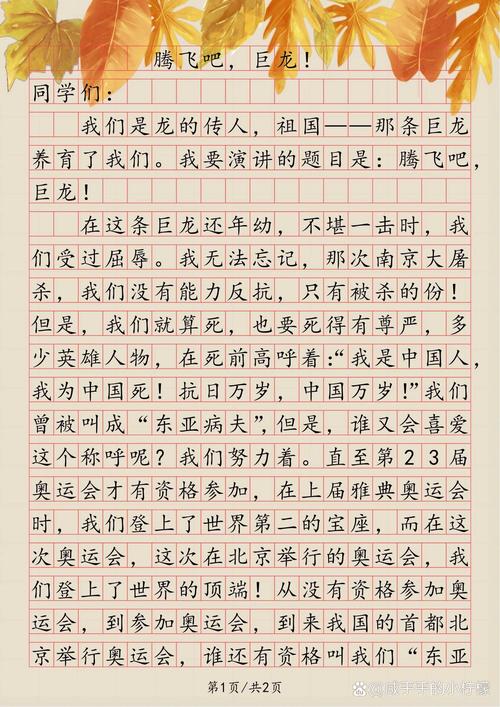 腾飞吧，巨龙！
同学们：
我们是龙的传人，祖国——那条巨龙
养育了我们。我要演讲的题目是：腾飞吧，
巨龙！
在这条巨龙还年幼，不堪一击时，我
们受过屈辱。我无法忘记，那次南京大屠
杀，我们没有能力反抗，只有被杀的份！
但是，我们就算死，也要死得有尊严，多
少英雄人物，在死前高呼着：“我是中国人，
我为中国死！抗日万岁，中国万岁！”我们
曾被叫成“东亚病夫”，但是，谁又会喜爱
这个称呼呢？我们努力着。直至第23届
奥运会才有资格参加，在上届雅典奥运会
时，我们登上了世界第二的宝座，而在这
次奥运会，这次在北京举行的奥运会，我
们登上了世界的顶端！从没有资格参加奥
运会，到参加奥运会，到来我国的首都北
京举行奥运会，谁还有资格叫我们“东亚
第1页/共2页
@咸手手的小柠檬